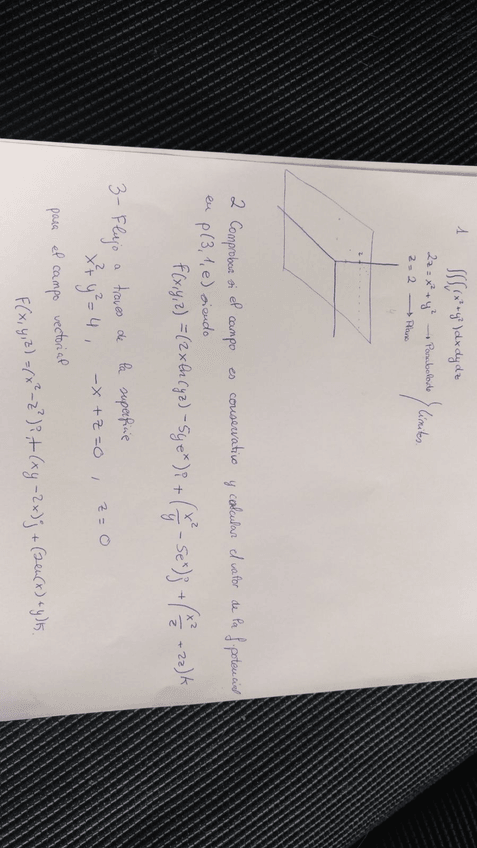 1 ∭(x²+y²)dxdydz
V
2z = x²+y² → Paraboloide
z = 2 → Plano
Límites.
2 Comprobar si el campo es conservativo y calcular el valor de la f. potencial
en p(3,1,e) siendo
f(x,y,z) = (2x ln(yz) - 5ye^x)i + (x²/y - 5e^x)j + (x²/z + 2z)k
3- Flujo a traves de la superficie
x²+y²=4, -x+z=0, z=0
para el campo vectorial
F(x,y,z)=(x²-z²)i+(xy-2x)j+(sen(x)+y)k.